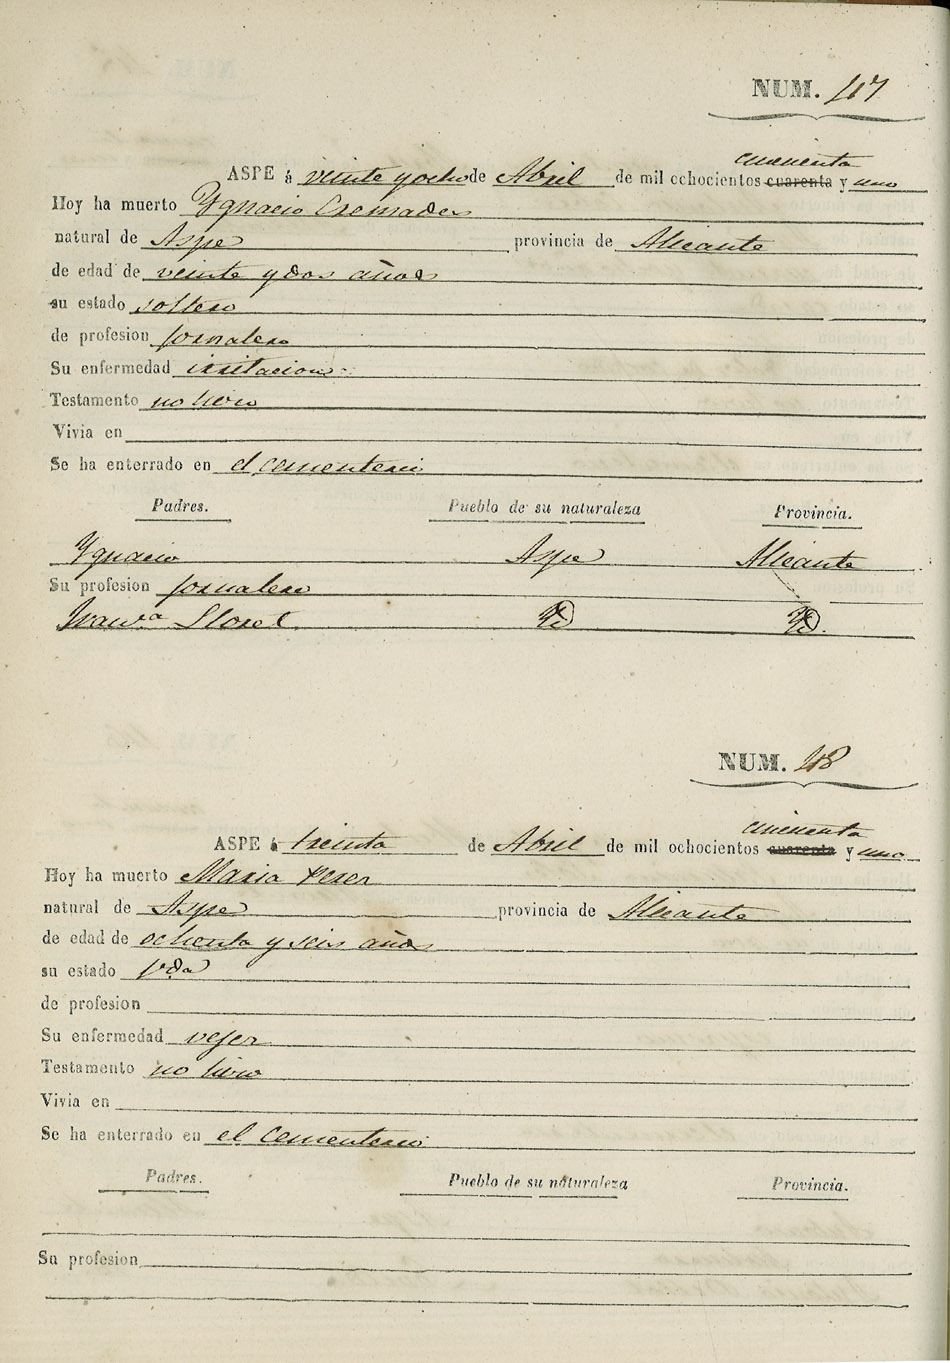 NUM. 47
cincuenta
ASPE á veinte y ocho de Abril de mil ochocientos cuarenta y uno
Hoy ha muerto Ygnacio Cremades
natural de Aspe provincia de Alicante
de edad de veinte y dos años
su estado soltero
de profesion jornalero
Su enfermedad irritacion
Testamento no hizo
Vivia en
Se ha enterrado en el cementerio
Padres. Pueblo de su naturaleza Provincia.
Ygnacio Aspe Alicante
Su profesion jornalero
Franca Lloret Yd Yd.
NUM. 48
cincuenta
ASPE á treinta de Abril de mil ochocientos cuarenta y uno
Hoy ha muerto Maria Perez
natural de Aspe provincia de Alicante
de edad de ochenta y seis años
su estado Vda
de profesion
Su enfermedad vejez
Testamento no hizo
Vivia en
Se ha enterrado en el cementerio
Padres. Pueblo de su naturaleza Provincia.
Su profesion